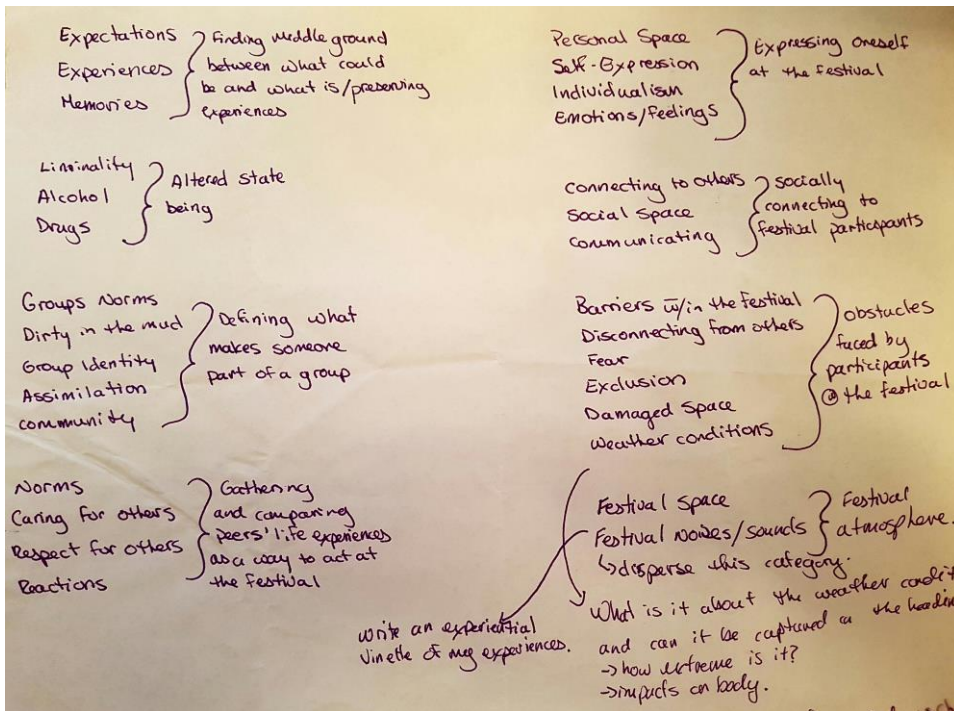 Expectations
Experiences
Memories
Finding middle ground
between what could
be and what is/preserving
experiences
Liminality
Alcohol
Drugs
Altered state
being
Groups Norms
Dirty in the mud
Group Identity
Assimilation
community
Defining what
makes someone
part of a group
Norms
Caring for others
Respect for others
Reactions
Gathering
and comparing
peers' life experiences
as a way to act at
the festival
Personal Space
Self-Expression
Individualism
Emotions/feelings
Expressing oneself
at the festival
Connecting to others
Social Space
Communicating
socially
connecting to
festival participants
Barriers w/in the festival
Disconnecting from others
Fear
Exclusion
Damaged Space
Weather conditions
obstacles
faced by
participants
@ the festival
Festival Space
Festival Noises/sounds
↳disperse this category.
Festival
atmosphere.
What is it about the weather condit
and can it be captured in the headin
→how extreme is it?
→impacts on body.
write an experiential
vinette of my experiences.